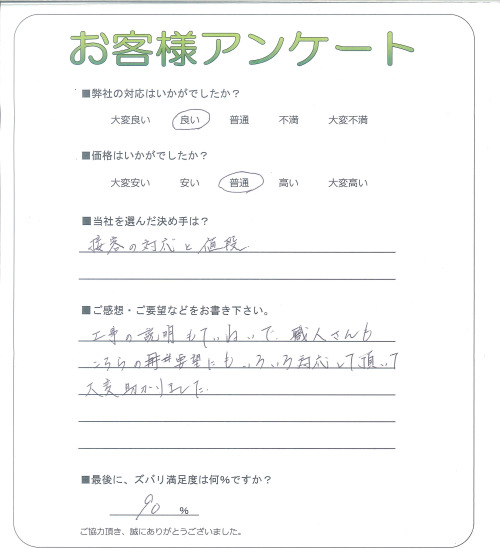 お客様アンケート
■弊社の対応はいかがでしたか？
大変良い 良い 普通 不満 大変不満
■価格はいかがでしたか？
大変安い 安い 普通 高い 大変高い
■当社を選んだ決め手は？
接客の対応と値段
■ご感想・ご要望などをお書き下さい。
工事の説明もていねいで、職人さんも
こちらの要望にもいろいろ対応して頂いて
大変助かりました。
■最後に、ズバリ満足度は何％ですか？
90 ％
ご協力頂き、誠にありがとうございました。